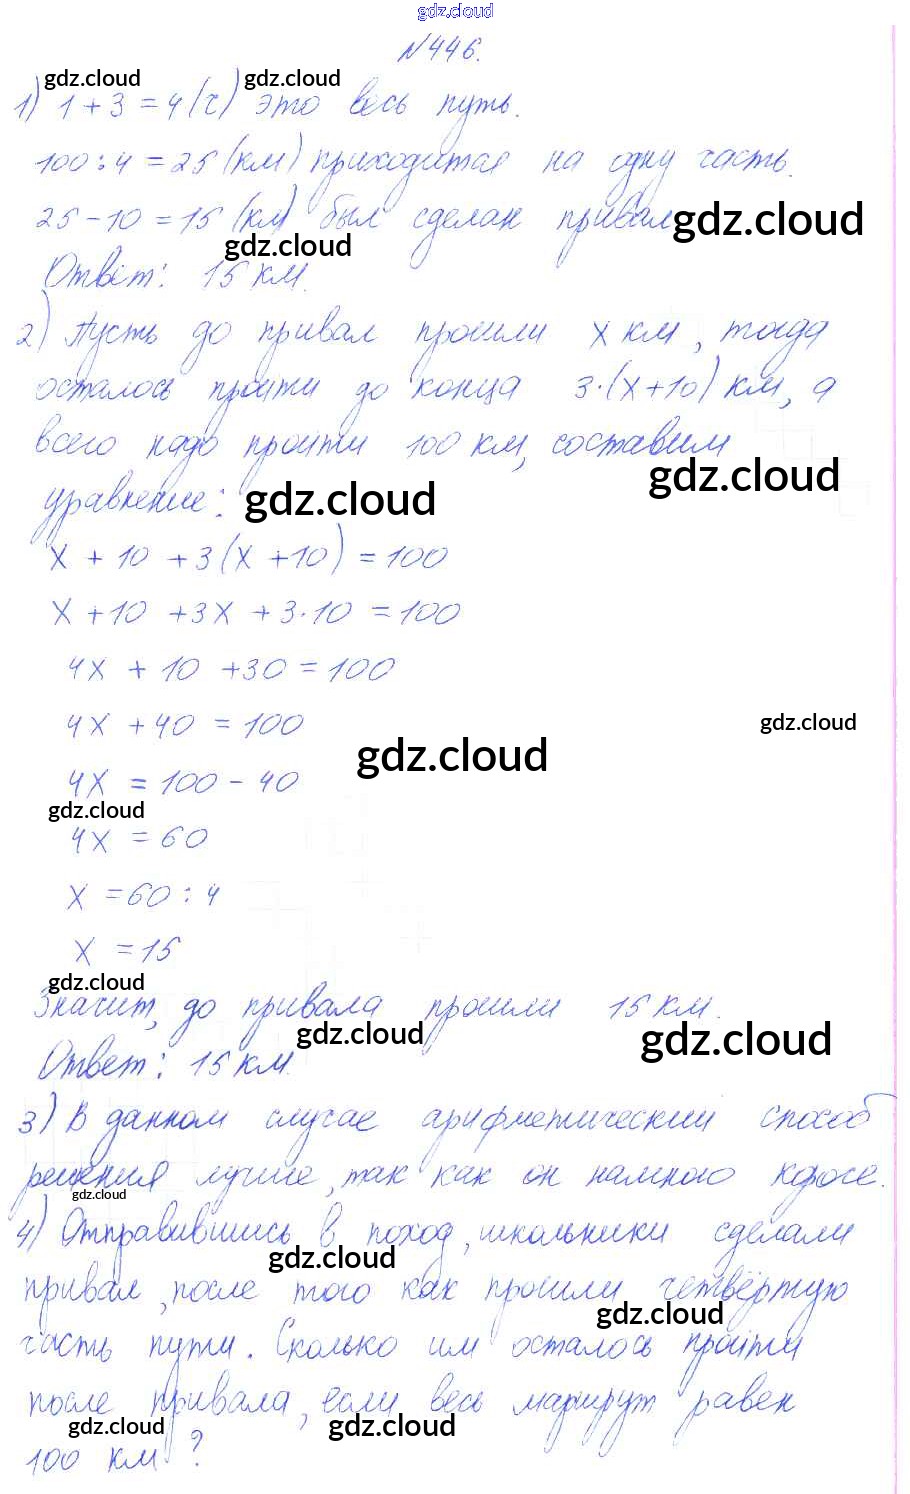 gdz.cloud
№446.
gdz.cloud gdz.cloud
1) 1 + 3 = 4 (ч) это весь путь.
100 : 4 = 25 (км) приходится на одну часть.
25 - 10 = 15 (км) был сделан привал gdz.cloud
gdz.cloud
Ответ: 15 км.
2) Пусть до привал прошли x км, тогда
осталось пройти до конца 3·(x+10) км, а
всего надо пройти 100 км, составим
gdz.cloud
уравнение: gdz.cloud
x + 10 + 3(x + 10) = 100
x + 10 + 3x + 3·10 = 100
4x + 10 + 30 = 100
4x + 40 = 100 gdz.cloud
gdz.cloud
4x = 100 - 40
gdz.cloud
4x = 60
x = 60 : 4
x = 15
gdz.cloud
Значит, до привала прошли 15 км.
gdz.cloud gdz.cloud
Ответ: 15 км.
3) В данном случае арифметический способ
решения лучше, так как он намного короче.
gdz.cloud
4) Отправившись в поход, школьники сделали
gdz.cloud
привал, после того как прошли четвёртую
gdz.cloud
часть пути. Сколько им осталось пройти
после привала, если весь маршрут равен
gdz.cloud gdz.cloud
100 км?